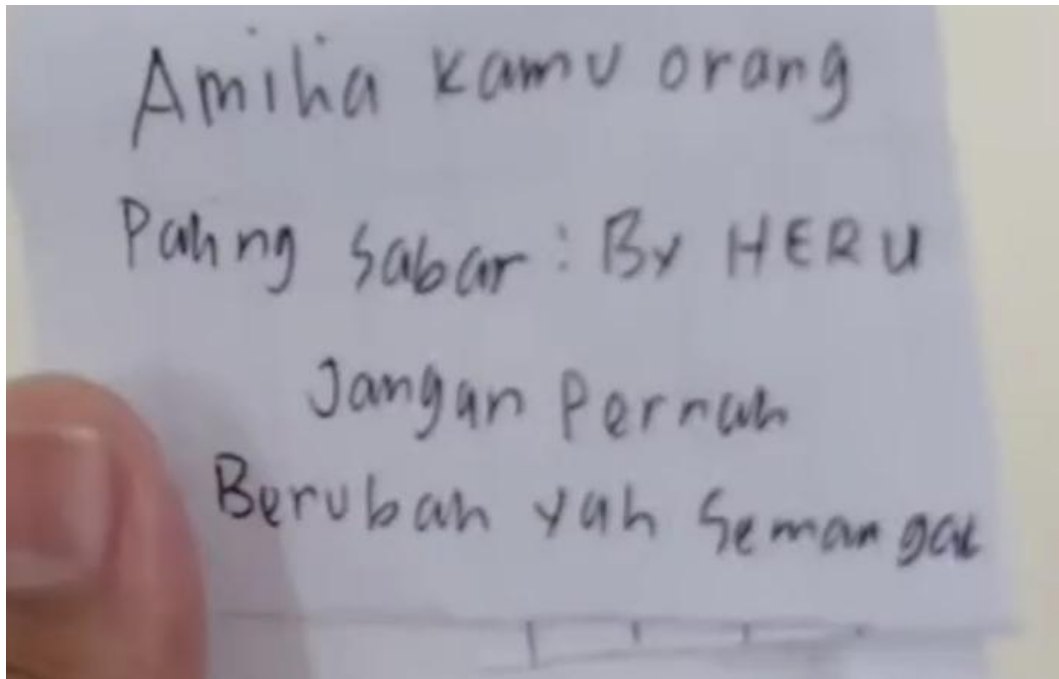 Amilia kamu orang
Paling sabar : By HERU
Jangan Pernah
Berubah yah Semangat